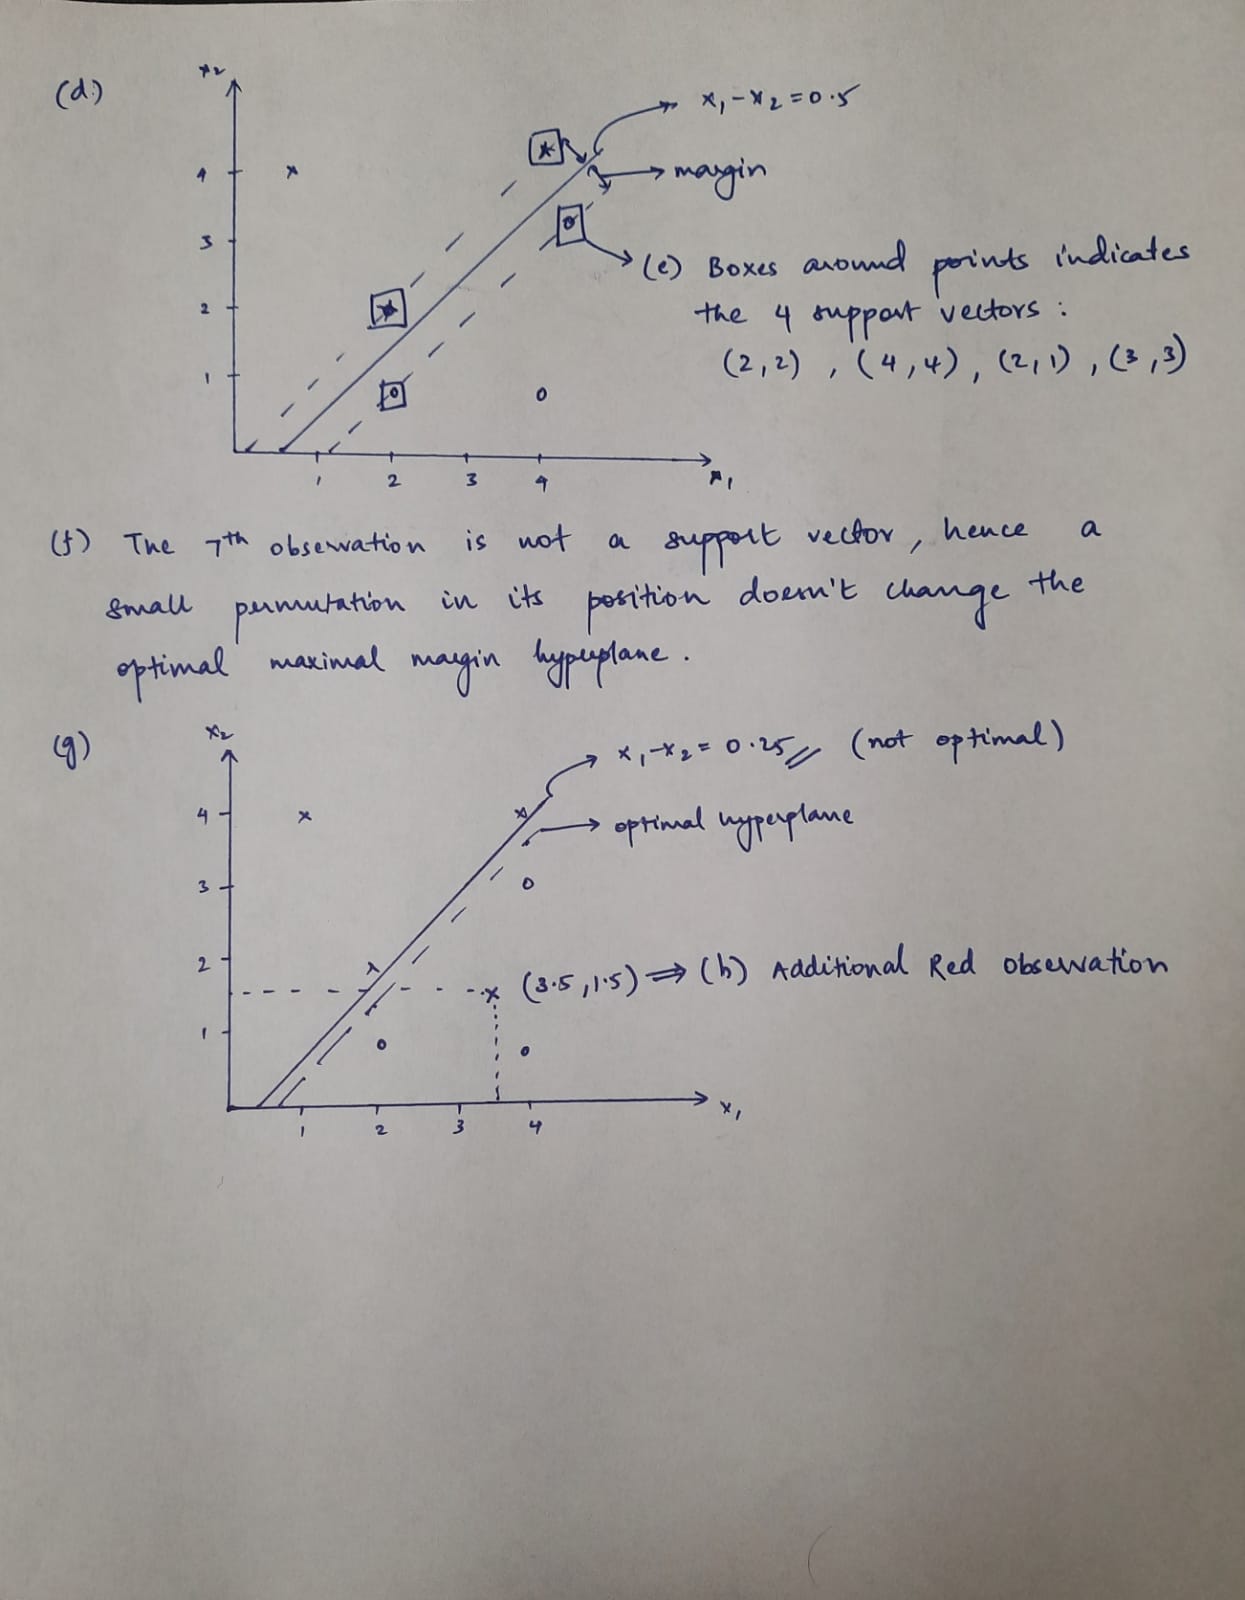 (d.)
x2
x1-x2=0.5
4
margin
3
(e) Boxes around points indicates
2
the 4 support vectors :
1
(2,2) , (4,4) , (2,1) , (3,3)
1 2 3 4 x1
(f) The 7th observation is not a support vector, hence a
small permutation in its position doesn't change the
optimal maximal margin hyperplane.
(g)
x2
x1-x2= 0.25 (not optimal)
4
optimal hyperplane
3
2
(3.5,1.5) ⇒ (h) Additional Red observation
1
1 2 3 4 x1